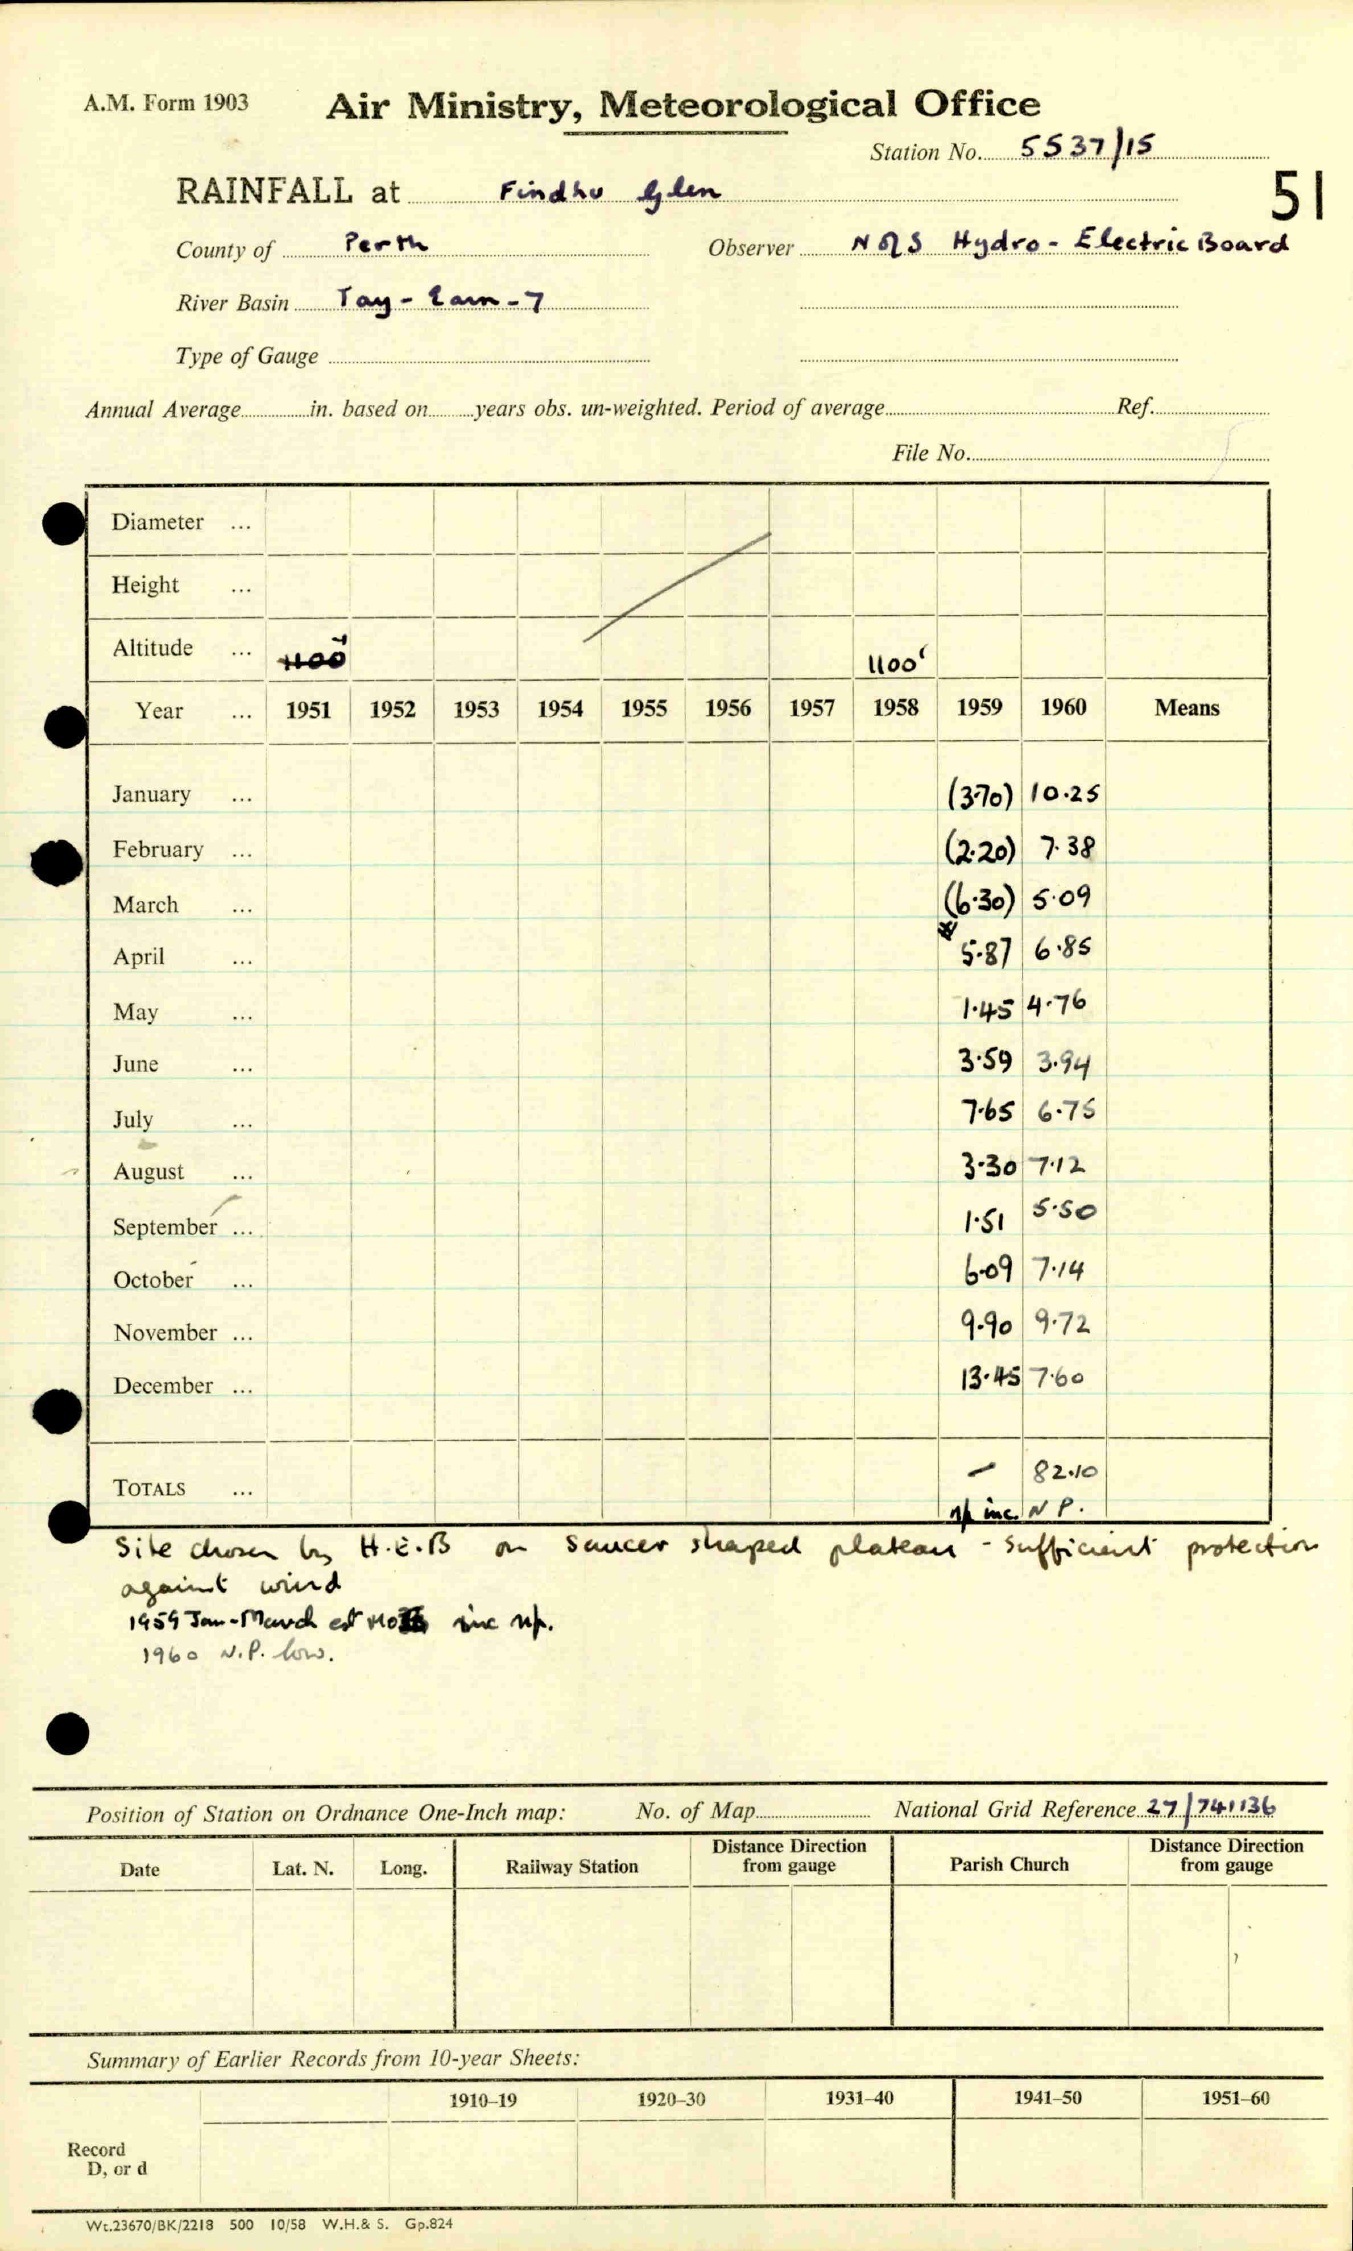 A.M. Form 1903 Air Ministry, Meteorological Office
Station No. 5537/15
RAINFALL at Findhu Glen 51
County of Perth Observer N of S Hydro-Electric Board
River Basin Tay - Earn - 7
Type of Gauge
Annual Average in. based on years obs. un-weighted. Period of average Ref.
File No.
Diameter ...
Height ...
Altitude ... 1100' 1100'
Year ... 1951 1952 1953 1954 1955 1956 1957 1958 1959 1960 Means
January ... (3.70) 10.25
February ... (2.20) 7.38
March ... (6.30) 5.09
April ... 5.87 6.85
May ... 1.45 4.76
June ... 3.59 3.94
July ... 7.65 6.75
August ... 3.30 7.12
September ... 1.51 5.50
October ... 6.09 7.14
November ... 9.90 9.72
December ... 13.45 7.60
TOTALS ... - 82.10
np inc. N P.
Site chosen by H.E.B on saucer shaped plateau - sufficient protection
against wind
1959 Jan-March est inc np.
1960 N.P. low.
Position of Station on Ordnance One-Inch map: No. of Map National Grid Reference 27/741136
Date Lat. N. Long. Railway Station Distance Direction from gauge Parish Church Distance Direction from gauge
Summary of Earlier Records from 10-year Sheets:
1910–19 1920–30 1931–40 1941–50 1951–60
Record
D, or d
Wt.23670/BK/2218 500 10/58 W.H.& S. Gp.824